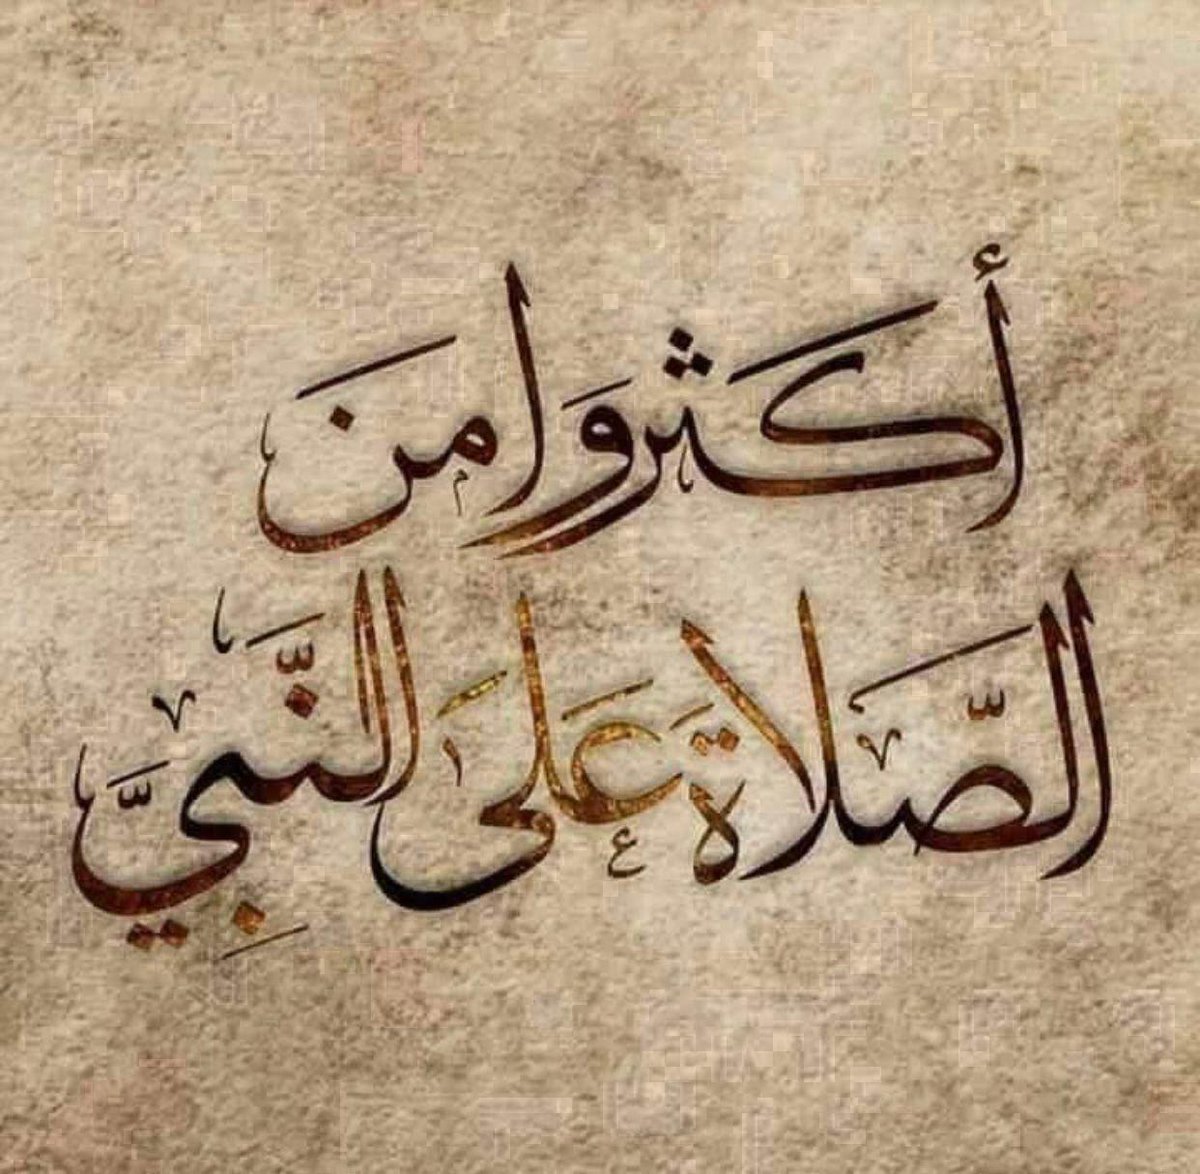 أكثروا منَ
الصَّلاةَ عَلَى النَّبِيَّ